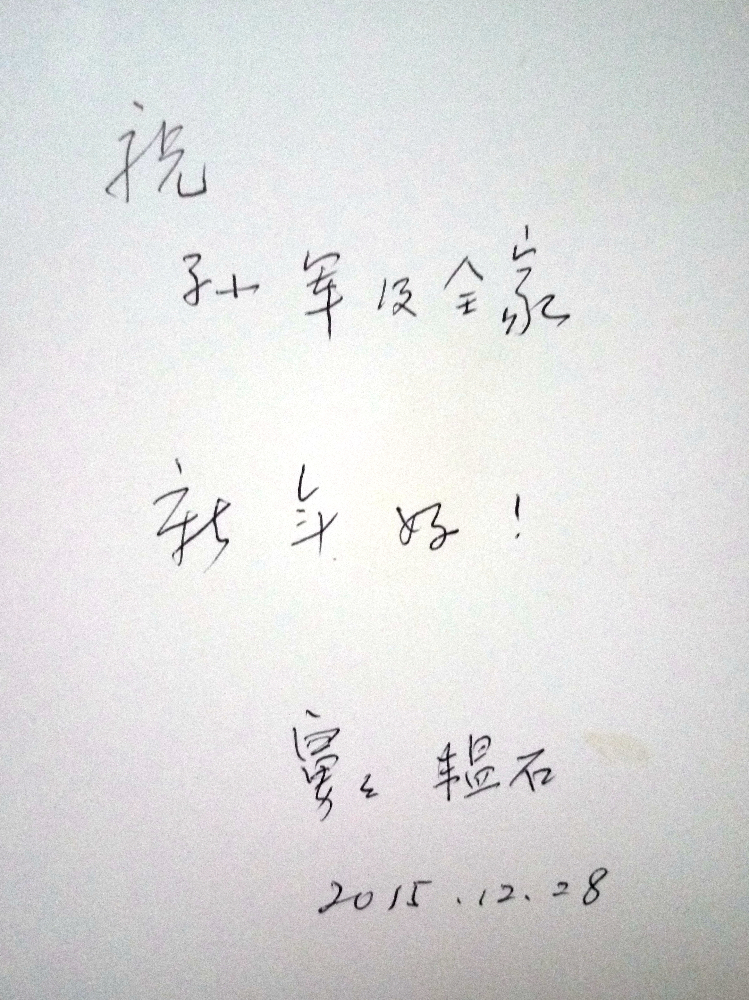 祝
孙军及全家
新年好！
舅舅 韫石
2015.12.28